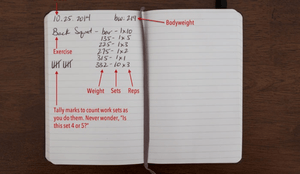 10.25.2014 bw. 214
Bodyweight
Back Squat - bar - 1x10
135 - 1x5
225 - 1x3
Exercise
275 - 1x2
315 - 1x1
352 - 10x3
Weight Sets Reps
Tally marks to count work sets as
you do them. Never wonder, "Is
this set 4 or 5?"